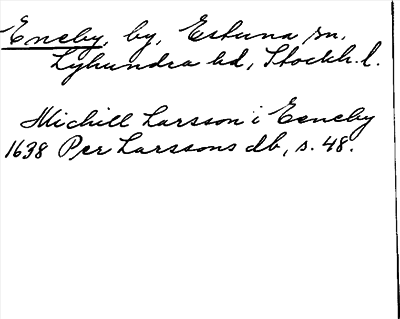 Eneby, by, Estuna sn,
Lyhundra hd, Stockh. l.
Michill Larsson i Eeneby
1638 Per Larssons db, s. 48.